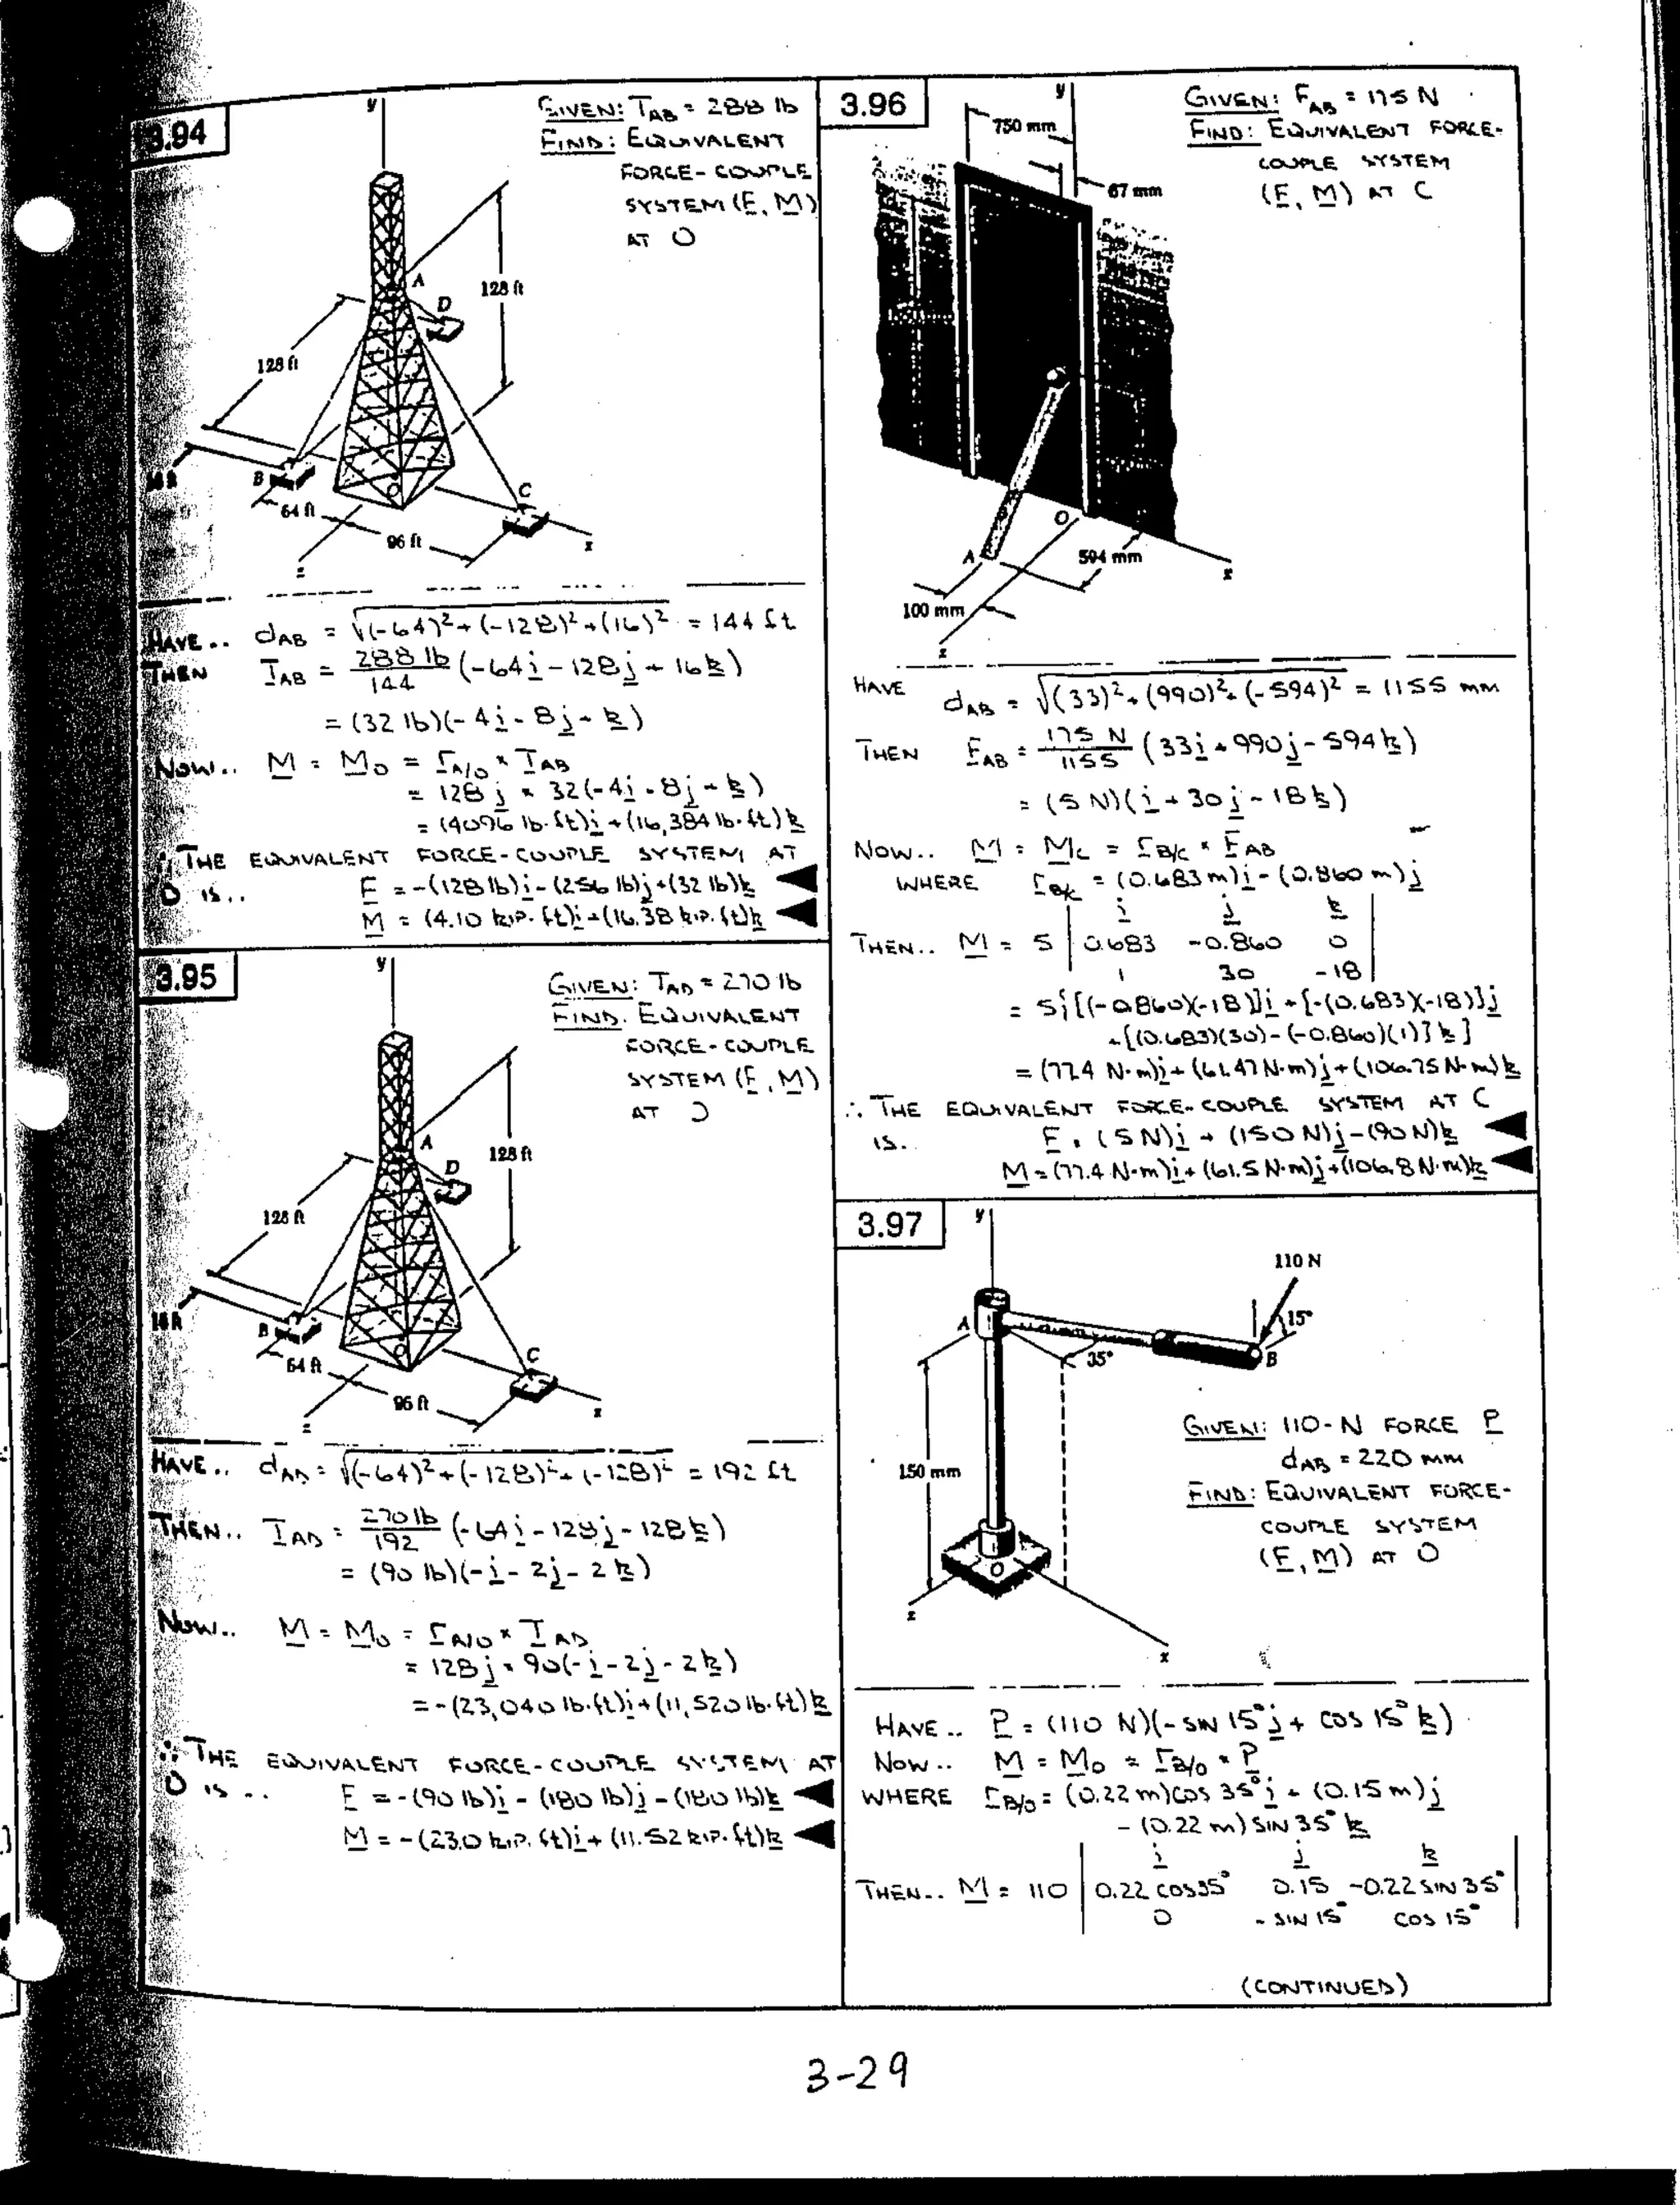 3.94
GIVEN: T_AB = 288 lb
FIND: EQUIVALENT
FORCE-COUPLE
SYSTEM (F, M)
AT O
y
A
D
128 ft
128 ft
B
O
C
64 ft
96 ft
x
z
HAVE.. d_AB = √((-64)² + (-128)² + (16)²) = 144 ft
THEN T_AB = 288 lb/144 (-64i - 128j + 16k)
= (32 lb)(-4i - 8j + k)
NOW.. M = M_O = r_A/O × T_AB
= 128 j × 32(-4i - 8j + k)
= (4096 lb·ft)i + (16,384 lb·ft)k
∴ THE EQUIVALENT FORCE-COUPLE SYSTEM AT
O IS.. F = -(128 lb)i - (256 lb)j + (32 lb)k
M = (4.10 kip·ft)i + (16.38 kip·ft)k
3.95
GIVEN: T_AD = 270 lb
FIND. EQUIVALENT
FORCE-COUPLE
SYSTEM (F, M)
AT O
y
A
D
128 ft
128 ft
16 ft
B
O
C
64 ft
96 ft
x
z
HAVE.. d_AD = √((-64)² + (-128)² + (-128)²) = 192 ft
THEN.. T_AD = 270 lb/192 (-64i - 128j - 128k)
= (90 lb)(-i - 2j - 2k)
NOW.. M = M_O = r_A/O × T_AD
= 128 j × 90(-i - 2j - 2k)
= -(23,040 lb·ft)i + (11,520 lb·ft)k
∴ THE EQUIVALENT FORCE-COUPLE SYSTEM AT
O IS .. F = -(90 lb)i - (180 lb)j - (180 lb)k
M = -(23.0 kip·ft)i + (11.52 kip·ft)k
3.96
GIVEN: F_AB = 175 N
FIND: EQUIVALENT FORCE-
COUPLE SYSTEM
(F, M) AT C
y
750 mm
67 mm
O
A
594 mm
x
100 mm
z
HAVE d_AB = √((33)² + (990)² + (-594)²) = 1155 mm
THEN F_AB = 175 N/1155 (33i + 990j - 594k)
= (5 N)(i + 30j - 18k)
NOW.. M = M_C = r_B/C × F_AB
WHERE r_B/C = (0.683 m)i - (0.860 m)j
i j k
THEN.. M = 5 | 0.683 -0.860 0 |
1 30 -18
= 5{[(-0.860)(-18)]i + [-(0.683)(-18)]j
+ [(0.683)(30) - (-0.860)(1)]k]
= (77.4 N·m)i + (61.47 N·m)j + (106.75 N·m)k
∴ THE EQUIVALENT FORCE-COUPLE SYSTEM AT C
IS. F = (5 N)i + (150 N)j - (90 N)k
M = (77.4 N·m)i + (61.5 N·m)j + (106.8 N·m)k
3.97
y
110 N
15°
A
35°
B
150 mm
O
z
x
GIVEN: 110-N FORCE P
d_AB = 220 mm
FIND: EQUIVALENT FORCE-
COUPLE SYSTEM
(F, M) AT O
HAVE .. P = (110 N)(-SIN 15° j + COS 15° k)
NOW .. M = M_O = r_B/O × P
WHERE r_B/O = (0.22 m)COS 35° i + (0.15 m)j
- (0.22 m) SIN 35° k
i j k
THEN.. M = 110 | 0.22 COS35° 0.15 -0.22 SIN 35° |
0 - SIN 15° COS 15°
(CONTINUED)
3-29